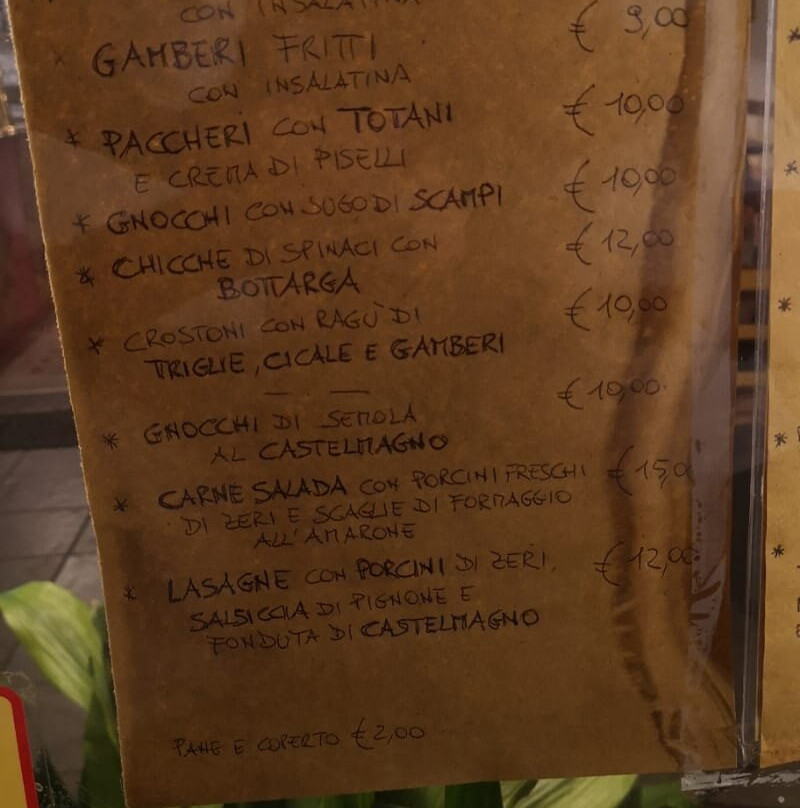 CON INSALATINA € 9,00
* GAMBERI FRITTI
CON INSALATINA € 10,00
* PACCHERI CON TOTANI
E CREMA DI PISELLI € 10,00
* GNOCCHI CON SUGO DI SCAMPI
* CHICCHE DI SPINACI CON € 12,00
BOTTARGA
* CROSTONI CON RAGÙ DI € 10,00
TRIGLIE, CICALE E GAMBERI
— —
€ 10,00
* GNOCCHI DI SEMOLA
AL CASTELMAGNO
* CARNE SALADA CON PORCINI FRESCHI € 15,0
DI ZERI E SCAGLIE DI FORMAGGIO
ALL'AMARONE
* LASAGNE CON PORCINI DI ZERI, € 12,00
SALSICCIA DI PIGNONE E
FONDUTA DI CASTELMAGNO
PANE E COPERTO € 2,00